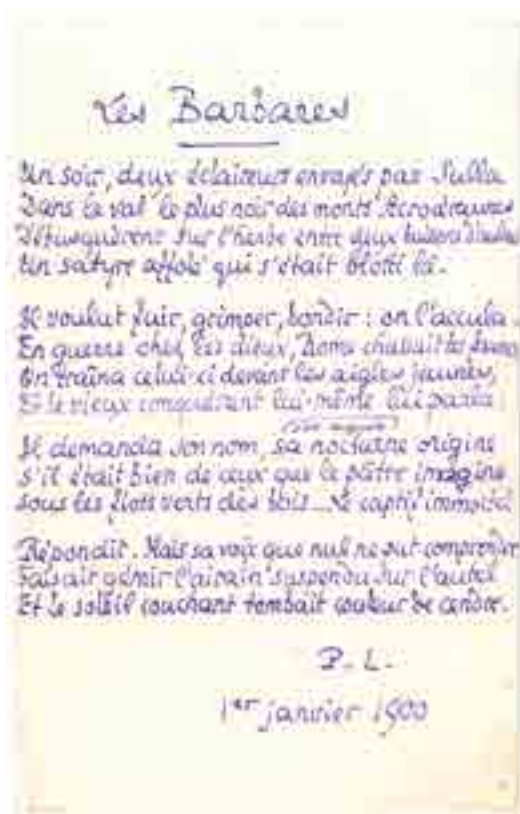 Les Barbares
Un soir, deux éclaireurs envoyés par Sulla
Dans le val le plus noir des monts
sur l'herbe entre deux buissons
Un satyre affolé qui s'était blotti là.
Il voulut fuir, grimper, bondir : on l'accula.
En guerre chez les dieux, Rome chassait les
On traîna celui-ci devant les aigles jaunes,
Et le vieux conquérant lui-même lui parla.
Il demanda son nom, sa nocturne origine
S'il était bien de ceux que le pâtre imagine
Sous les flots verts des bois... Le captif immortel
Répondit. Mais sa voix que nul ne sut comprendre
Faisait gémir l'airain suspendu sur l'autel
Et le soleil couchant tombait couleur de cendre.
P. L.
1er janvier 1900